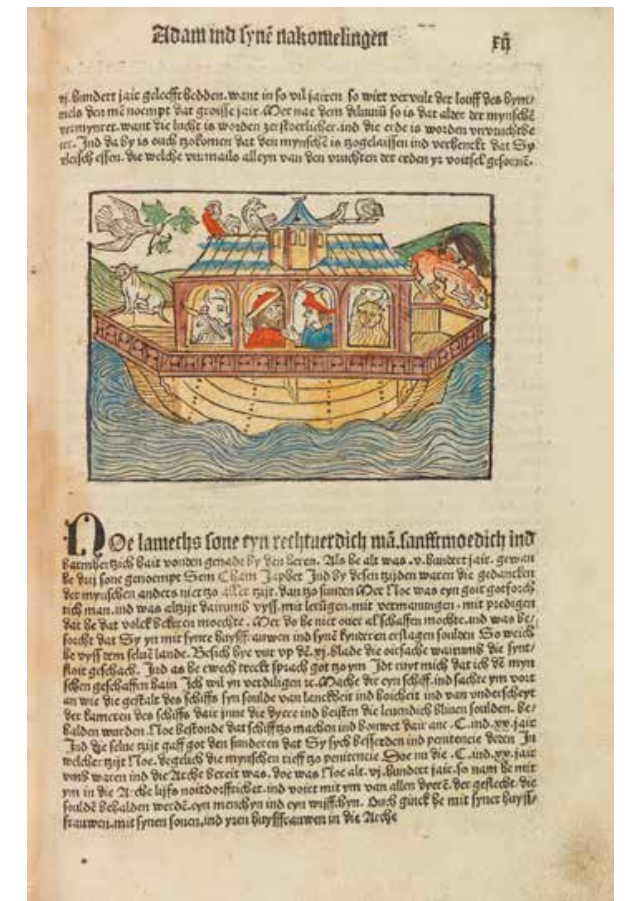 Adam ind synē nakomelingen
xij
vj. hundert jair geleefft hedden. want in so vil jairen so wirt vervult der louff des hym/
mels den mē noempt dat groisse jair. Mer nae dem diluuiū so is dat alder der mynschē
vermynret. want die lucht is worden zerstoerlicher. ind die erde is worden vnvruchtbe
rer. Ind da by is ouch tzokomen dat den mynschē is tzogelaissen ind verhenckt dat Sy
vleisch essen. die welche vurmails alleyn van den vruchten der erden yr voitsel
NOe lamechs sone eyn rechtuerdich mā. sanfftmoedich ind
barmhertzich hait vonden genade by den heren. Als he alt was .v. hundert jair. gewan
he drij sone genoempt Sem Cham Japhet Ind by desen tzijden waren die gedancken
der mynschen anders niet tzo aller tzijt. dan tzo sunden Mer Noe was eyn goit gotforch
tich man. ind was altzijt darumb vyss. mit leringen. mit vermanungen. mit predigen
dat he dat volck bekeren moechte. Mer do he niet ouer al schaffen mochte. ind was be/
sorcht dat Sy yn mit synre huysfrauwen ind synē kynderen erslagen soulden So weich
he vyss dem seluē lande. Besich hye vur vp dē .vj. blade die oirsache warumb die synt/
floit geschach. Ind as he ewech treckt sprach got tzo ym Idt ruyt mich dat ich dē myn
schen geschaffen hain Ich wil yn verdiligen Mache die eyn schiff. ind sachte ym vort
an wie die gestalt des schiffs syn soulde van lanckheit ind hoicheit ind van vnderscheyt
der kameren des schiffs dair jnne die dyere ind beisten die leuendich blijuen soulden. be/
halden wurden. Noe bestonde dat schiff tzo machen ind bouwet dair ane .C. ind .xx. jair
Ind die selue tzijt gaff got den sunderen dat Sy sych besserden ind penitencie deden In
welcher tzijt Noe. degelich die mynschen rieff tzo penitencie Doe nu die .C. ind .xx. jair
vmb waren ind die Arche bereit was. doe was Noe alt .vj. hundert jair. so nam he mit
ym in die Arche lijfs noitdorfftichet. ind voirt mit ym van allen dyerē. der geslecht. die
souldē behalden werdē. eyn menchyn ind eyn wijfchyn. Ouch ginck he mit synre huysf/
frauwen. mit synen sonen. ind yren huysffrauwen in die Arche